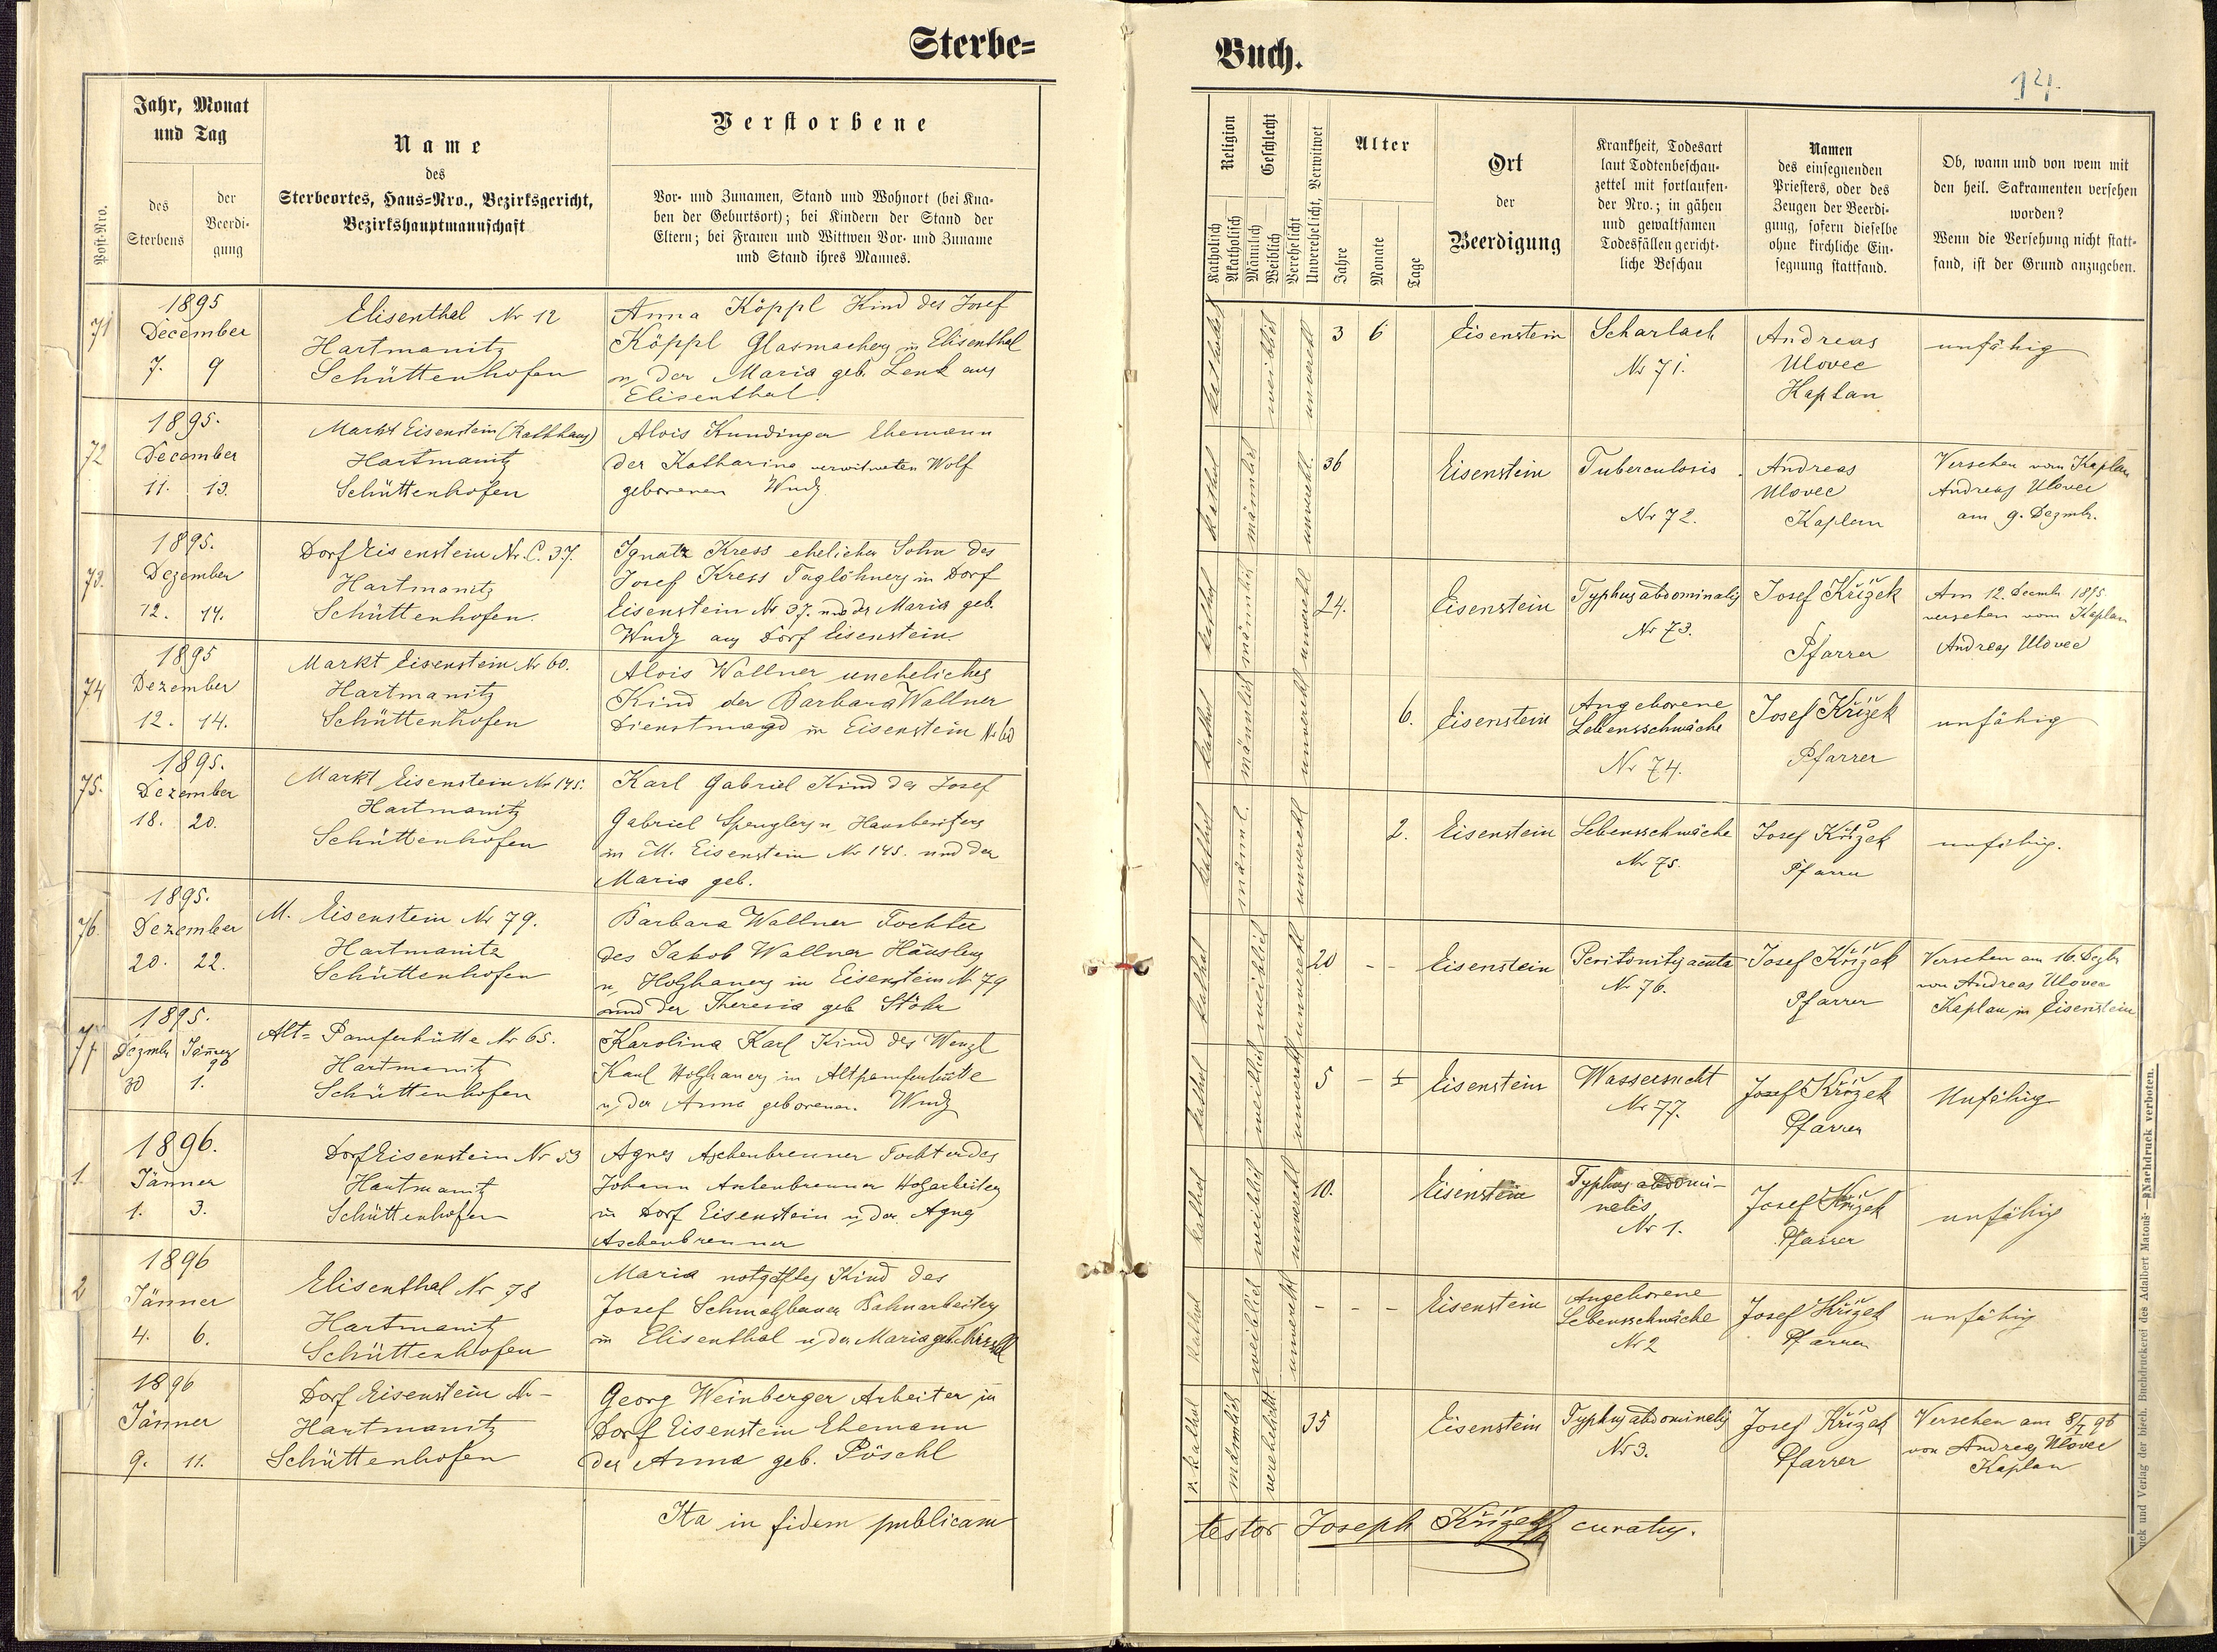 Sterbe=
Buch.
14.
Post-Nro.
Jahr, Monat
und Tag
des
Sterbens
der
Beerdi-
gung
Name
des
Sterbeortes, Haus-Nro., Bezirksgericht,
Bezirkshauptmannschaft
Verstorbene
Vor- und Zunamen, Stand und Wohnort (bei Kna-
ben der Geburtsort); bei Kindern der Stand der
Eltern; bei Frauen und Wittwen Vor- und Zuname
und Stand ihres Mannes.
Religion
Katholisch
Akatholisch
Geschlecht
Männlich
Weiblich
Verehelicht
Unverehelicht, Verwitwet
Alter
Jahre
Monate
Tage
Ort
der
Beerdigung
Krankheit, Todesart
laut Todtenbeschau-
zettel mit fortlaufen-
der Nro.; in gähen
und gewaltsamen
Todesfällen gericht-
liche Beschau
Namen
des einsegnenden
Priesters, oder des
Zeugen der Beerdi-
gung, sofern dieselbe
ohne kirchliche Ein-
segnung stattfand.
Ob, wann und von wem mit
den heil. Sakramenten versehen
worden?
Wenn die Versehung nicht statt-
fand, ist der Grund anzugeben.
71
1895
December
7. 9
Elisenthal Nr 12
Hartmanitz
Schüttenhofen
Anna Köppl Kind des Josef
Köppl Glasmachers in Elisenthal
u. der Maria geb. Lenk aus
Elisenthal.
weiblich
unverehl
3 6
Eisenstein
Scharlach
Nr 71.
Andreas
Ulovec
Kaplan
unfähig
72
1895.
December
11. 13.
Markt Eisenstein (Rathhaus)
Hartmanitz
Schüttenhofen
Alois Kundinger Ehemann
der Katharina verwitweten Wolf
geborenen Wudy
kathol
männlich
unverehl.
36
Eisenstein
Tuberculosis.
Nr 72.
Andreas
Ulovec
Kaplan
Versehen vom Kaplan
Andreas Ulovec
am 9. Dezmb.
73.
1895.
Dezember
12. 14.
Dorf Eisenstein Nr. C. 37.
Hartmanitz
Schüttenhofen.
Ignatz Kress ehelicher Sohn des
Josef Kress Taglöhners in Dorf
Eisenstein Nr 37. und der Maria geb.
Wudy aus Dorf Eisenstein
kathol
männlich
unverehl
24.
Eisenstein
Typhus abdominalis
Nr 73.
Josef Křižek
Pfarrer
Am 12. Decemb 1895
versehen vom Kaplan
Andreas Ulovec
74
1895
Dezember
12. 14.
Markt Eisenstein Nr 60.
Hartmanitz
Schüttenhofen
Alois Wallner uneheliches
Kind der Barbara Wallner
Dienstmagd in Eisenstein Nr 60
kathol
männlich
unverehl
6.
Eisenstein
Angeborene
Lebensschwäche
Nr 74.
Josef Křižek
Pfarrer
unfähig
75.
1895.
Dezember
18. 20.
Markt Eisenstein Nr 145.
Hartmanitz
Schüttenhofen
Karl Gabriel Kind des Josef
Gabriel Spenglers u. Hausbesitzers
in M. Eisenstein Nr 145. und der
Maria geb.
kathol
männl.
unverehl
2.
Eisenstein
Lebensschwäche
Nr 75.
Josef Křižek
Pfarrer
unfähig.
76.
1895.
Dezember
20. 22.
M. Eisenstein Nr 79.
Hartmanitz
Schüttenhofen
Barbara Wallner Tochter
des Jakob Wallner Häuslers
u. Holzhauers in Eisenstein Nr 79
und der Theresia geb Stöhr
kathol
weiblich
unverehl
20 - -
Eisenstein
Peritonitis acuta
Nr 76.
Josef Křižek
Pfarrer
Versehen am 16. Dezb
von Andreas Ulovec
Kaplan in Eisenstein
77.
1895.
Dezmb Jänner
96
30 1.
Alt= Pamferhütte Nr 65.
Hartmanitz
Schüttenhofen
Karolina Karl Kind des Wenzl
Karl Holzhauers in Altpamferhütte
u. der Anna geborenen. Wudy
kathol
weiblich
unverehl
5 -
Eisenstein
Wassersucht
Nr 77.
Josef Křižek
Pfarrer
Unfähig
1.
1896.
Jänner
1. 3.
Dorf Eisenstein Nr 53
Hartmanitz
Schüttenhofen
Agnes Aschenbrenner Tochter des
Johann Aschenbrenner Holzarbeiters
in Dorf Eisenstein u. der Agnes
Aschenbrenner
kathol
weiblich
unverehl
10.
Eisenstein
Typhus abdomi-
nalis
Nr 1.
Josef Křižek
Pfarrer
unfähig
2
1896
Jänner
4. 6.
Elisenthal Nr 78
Hartmanitz
Schüttenhofen
Maria notgetftes Kind des
Josef Schmalzbauer Bahnarbeiters
in Elisenthal u. der Maria geb.
kathol
weiblich
unverehl
- - -
Eisenstein
Angeborene
Lebensschwäche
Nr 2
Josef Křižek
Pfarrer
unfähig
1896
Jänner
9. 11.
Dorf Eisenstein Nr -
Hartmanitz
Schüttenhofen
Georg Weinberger Arbeiter in
Dorf Eisenstein Ehemann
der Anna geb. Pöschl
r. kathol
männlich
verehelicht
35
Eisenstein
Typhus abdominalis
Nr 3.
Josef Křižek
Pfarrer
Versehen am 8/I 96
von Andreas Ulovec
Kaplan
Ita in fidem publicam
testor Joseph Křižek curatus.
Druck und Verlag der bisch. Buchdruckerei des Adalbert Matouš — Nachdruck verboten.